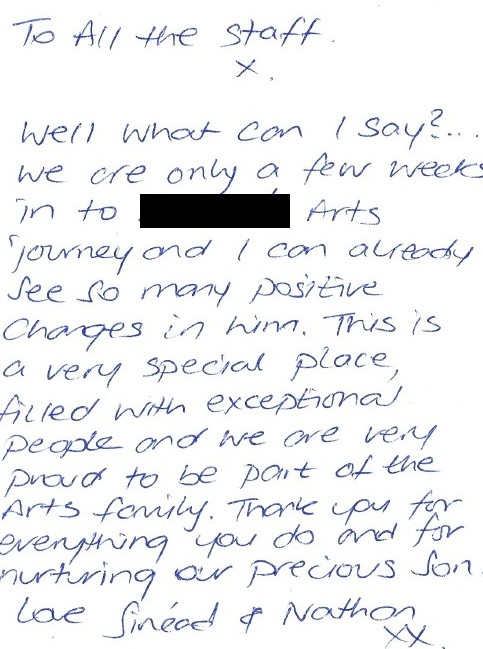 To All the staff.
x.
Well what can I say?...
we are only a few weeks
in to Arts
journey and I can already
see so many positive
changes in him. This is
a very special place,
filled with exceptional
people and we are very
proud to be part of the
Arts family. Thank you for
everything you do and for
nurturing our precious son.
Love Sinéad & Nathan
xx.